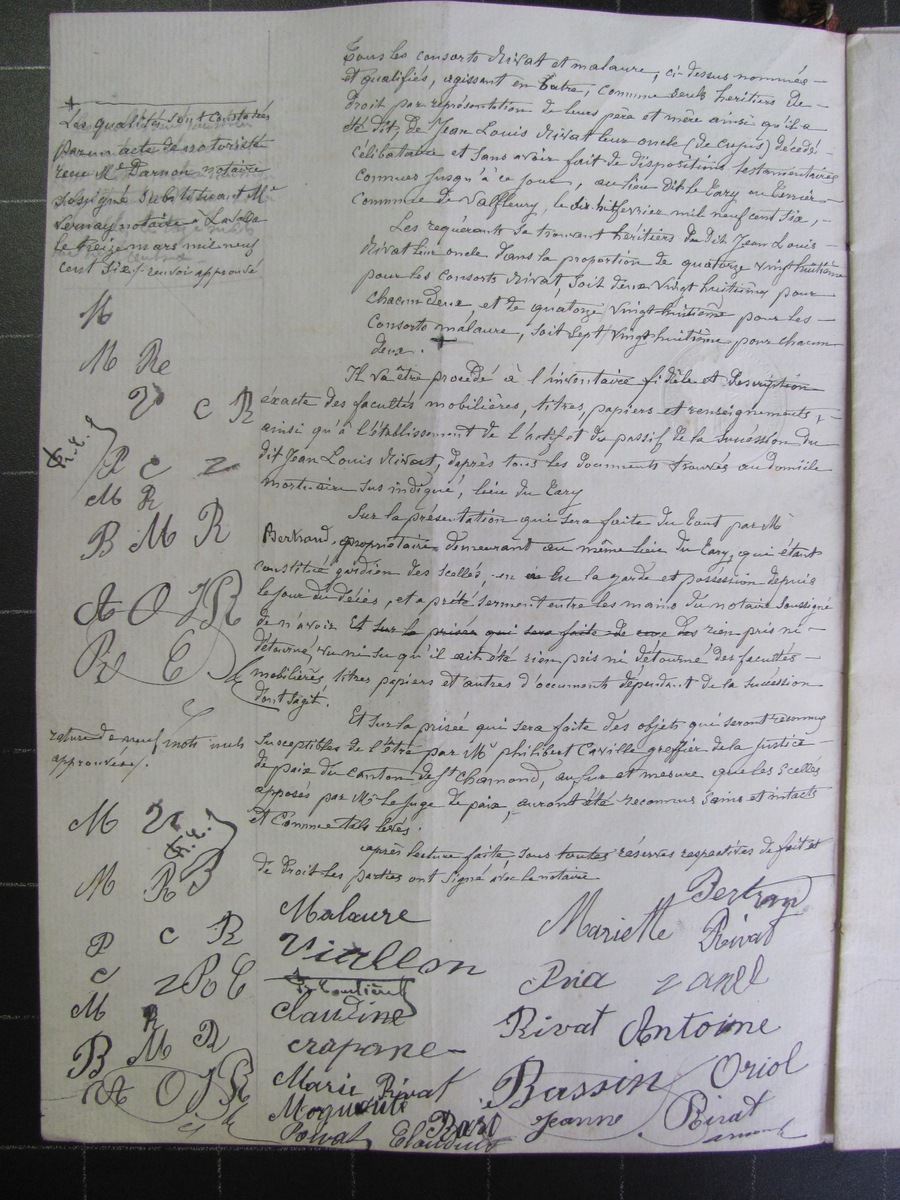 Tous les consorts Rivat et malaure, ci-dessus nommés
et qualifiés, agissant en outre, comme seuls héritiers de
droit par représentation de leurs père et mère ainsi qu'il a
été dit, de Jean Louis Rivat leur oncle (de cujus) décédé
célibataire et sans avoir fait de dispositions testamentaires
connues jusqu'à ce jour, au lieu dit le Eary ou
Commune de Valfleury, le dix huit février mil neuf cent six,
Les requérants se trouvant héritiers du dit Jean Louis
Rivat leur oncle dans la proportion de quatorze vingt huitième
pour les consorts Rivat, soit deux vingt huitièmes pour
chacun deux et de quatorze vingt huitième pour les
Consorts malaure, soit sept vingt huitième pour chacun
deux. +
Il va être procédé à l'inventaire fidèle et description
éxacte des facultés mobilières, titres, papiers et renseignements,
ainsi qu'à l'établissement de l'actif et du passif de la succession du
dit Jean Louis Rivat, daprès tous les documents trouvés au domicile
mortuaire sus indiqué, lieu du Eary
Sur la présentation qui sera faite du tout par Mr
Bertrand, propriétaire demeurant au même lieu du Eary, qui étant
constitué gardien des scellés, en a eu la garde et possession depuis
le jour du décès, et a prêté serment entre les mains du notaire soussigné
de n'avoir Et sur la prisée qui sera faite de ces des rien pris ni
détourné, vu ni su qu'il ait été rien pris ni détourné des facultés
mobilières titres papiers et autres d'ocuments dépendant de la succession
dont sagit.
Et sur la prisée qui sera faite des objets qui seront reconnus
susceptibles de l'être par Mr philibert Caville greffier de la justice
de paix du canton de St Chamond, au fur et mesure que les scellés
apposés par Mr Le Juge de paix, auront été reconnus sains et intacts
et Comme tels levés.
après lecture faite sous toutes réserves respectives de fait et
de droit les parties ont signé avec le notaire
+
Les qualités sont constatées
par un acte de notoriété
reçu Me Darnon notaire
soussigné substituant Me
Vernay notaire à
le treize mars mil neuf
cent six / renvoi approuvé
M
M Re
V c R
P c Z
M R
B M R
A O J R
Rv E
rature de neuf mots nuls
approuvés.
M V
M R B
P c R
c Z R E
M R
B M R
A O J R
Bertrand
Malaure
Mariette Rivat
Viallon
Pria Zanel
Claudine
crapane
Rivat Antoine
Marie Rivat
Bassin Oriol
Marguerite Bard
Jeanne Rivat
Rivat Claudius